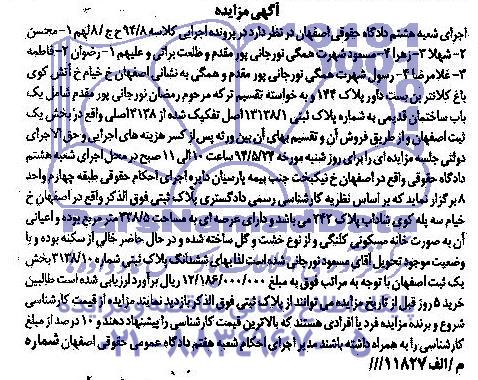 آگهی مزایده
اجرای شعبه هشتم دادگاه حقوقی اصفهان در نظر دارد در پرونده اجرایی کلاسه ۹۴/۸ ح ج / ۸ لهم ۱- محسن
۲- شهلا ۳- زهرا ۴- مسعود شهرت همگی نورجانی پور مقدم و طلعت براتی و علیهم ۱- رضوان ۲- فاطمه
۳- غلامرضا ۴- رسول شهرت همگی نورجانی پور مقدم و همگی به نشانی اصفهان خ خیام خ آتش کوی
باغ کلانتر بن بست داور پلاک ۱۴۴ و به خواسته تقسیم ترکه مرحوم رمضان نورجانی پور مقدم شامل یک
باب ساختمان قدیمی به شماره پلاک ثبتی ۱۳۱۳۸/۱ اصل تفکیک شده از ۳۱۳۸ اصلی واقع در بخش یک
ثبت اصفهان و از طریق فروش آن و تقسیم بهای آن بین ورثه پس از کسر هزینه های اجرای و حق الاجرای
دولتی جلسه مزایده ای را برای روز شنبه مورخه ۹۴/۵/۲۴ ساعت ۱۰ الی ۱۱ صبح در محل اجرای شعبه هشتم
دادگاه حقوقی واقع در اصفهان خ نیکبخت جنب بیمه پارسیان دایره اجرای احکام حقوقی طبقه چهارم واحد
۸ برگزار نماید که بر اساس نظریه کارشناسی رسمی دادگستری پلاک ثبتی فوق الذکر واقع در اصفهان خ
خیام سه پله کوی شاداب پلاک ۲۴۲ می باشد و دارای عرصه ای به مساحت ۳۴۸/۵ متر مربع بوده و اعیانی
آن به صورت خانه مسکونی کلنگی و از نوع خشت و گل ساخته شده و در حال حاضر خالی از سکنه بوده و با
وضعیت موجود تحویل آقای مسعود نورجانی شده است لذا بهای ششدانگ پلاک ثبتی شماره ۳۱۳۸/۱ بخش
یک ثبت اصفهان با توجه به مراتب فوق به مبلغ ۱۲/۱۸۶/۰۰۰/۰۰۰ ریال برآورد ارزیابی شده است طالبین
خرید ۵ روز قبل از تاریخ مزایده می توانند از پلاک ثبتی فوق الذکر بازدید نمایند مزایده از قیمت کارشناسی
شروع و برنده مزایده فرد یا افرادی هستند که بالاترین قیمت کارشناسی را پیشنهاد دهند و ۱۰ درصد از مبلغ
کارشناسی را به همراه داشته باشند مدیر اجرای احکام شعبه هفتم دادگاه عمومی حقوقی اصفهان شماره
م / الف ۱۱۸۲۷ ///